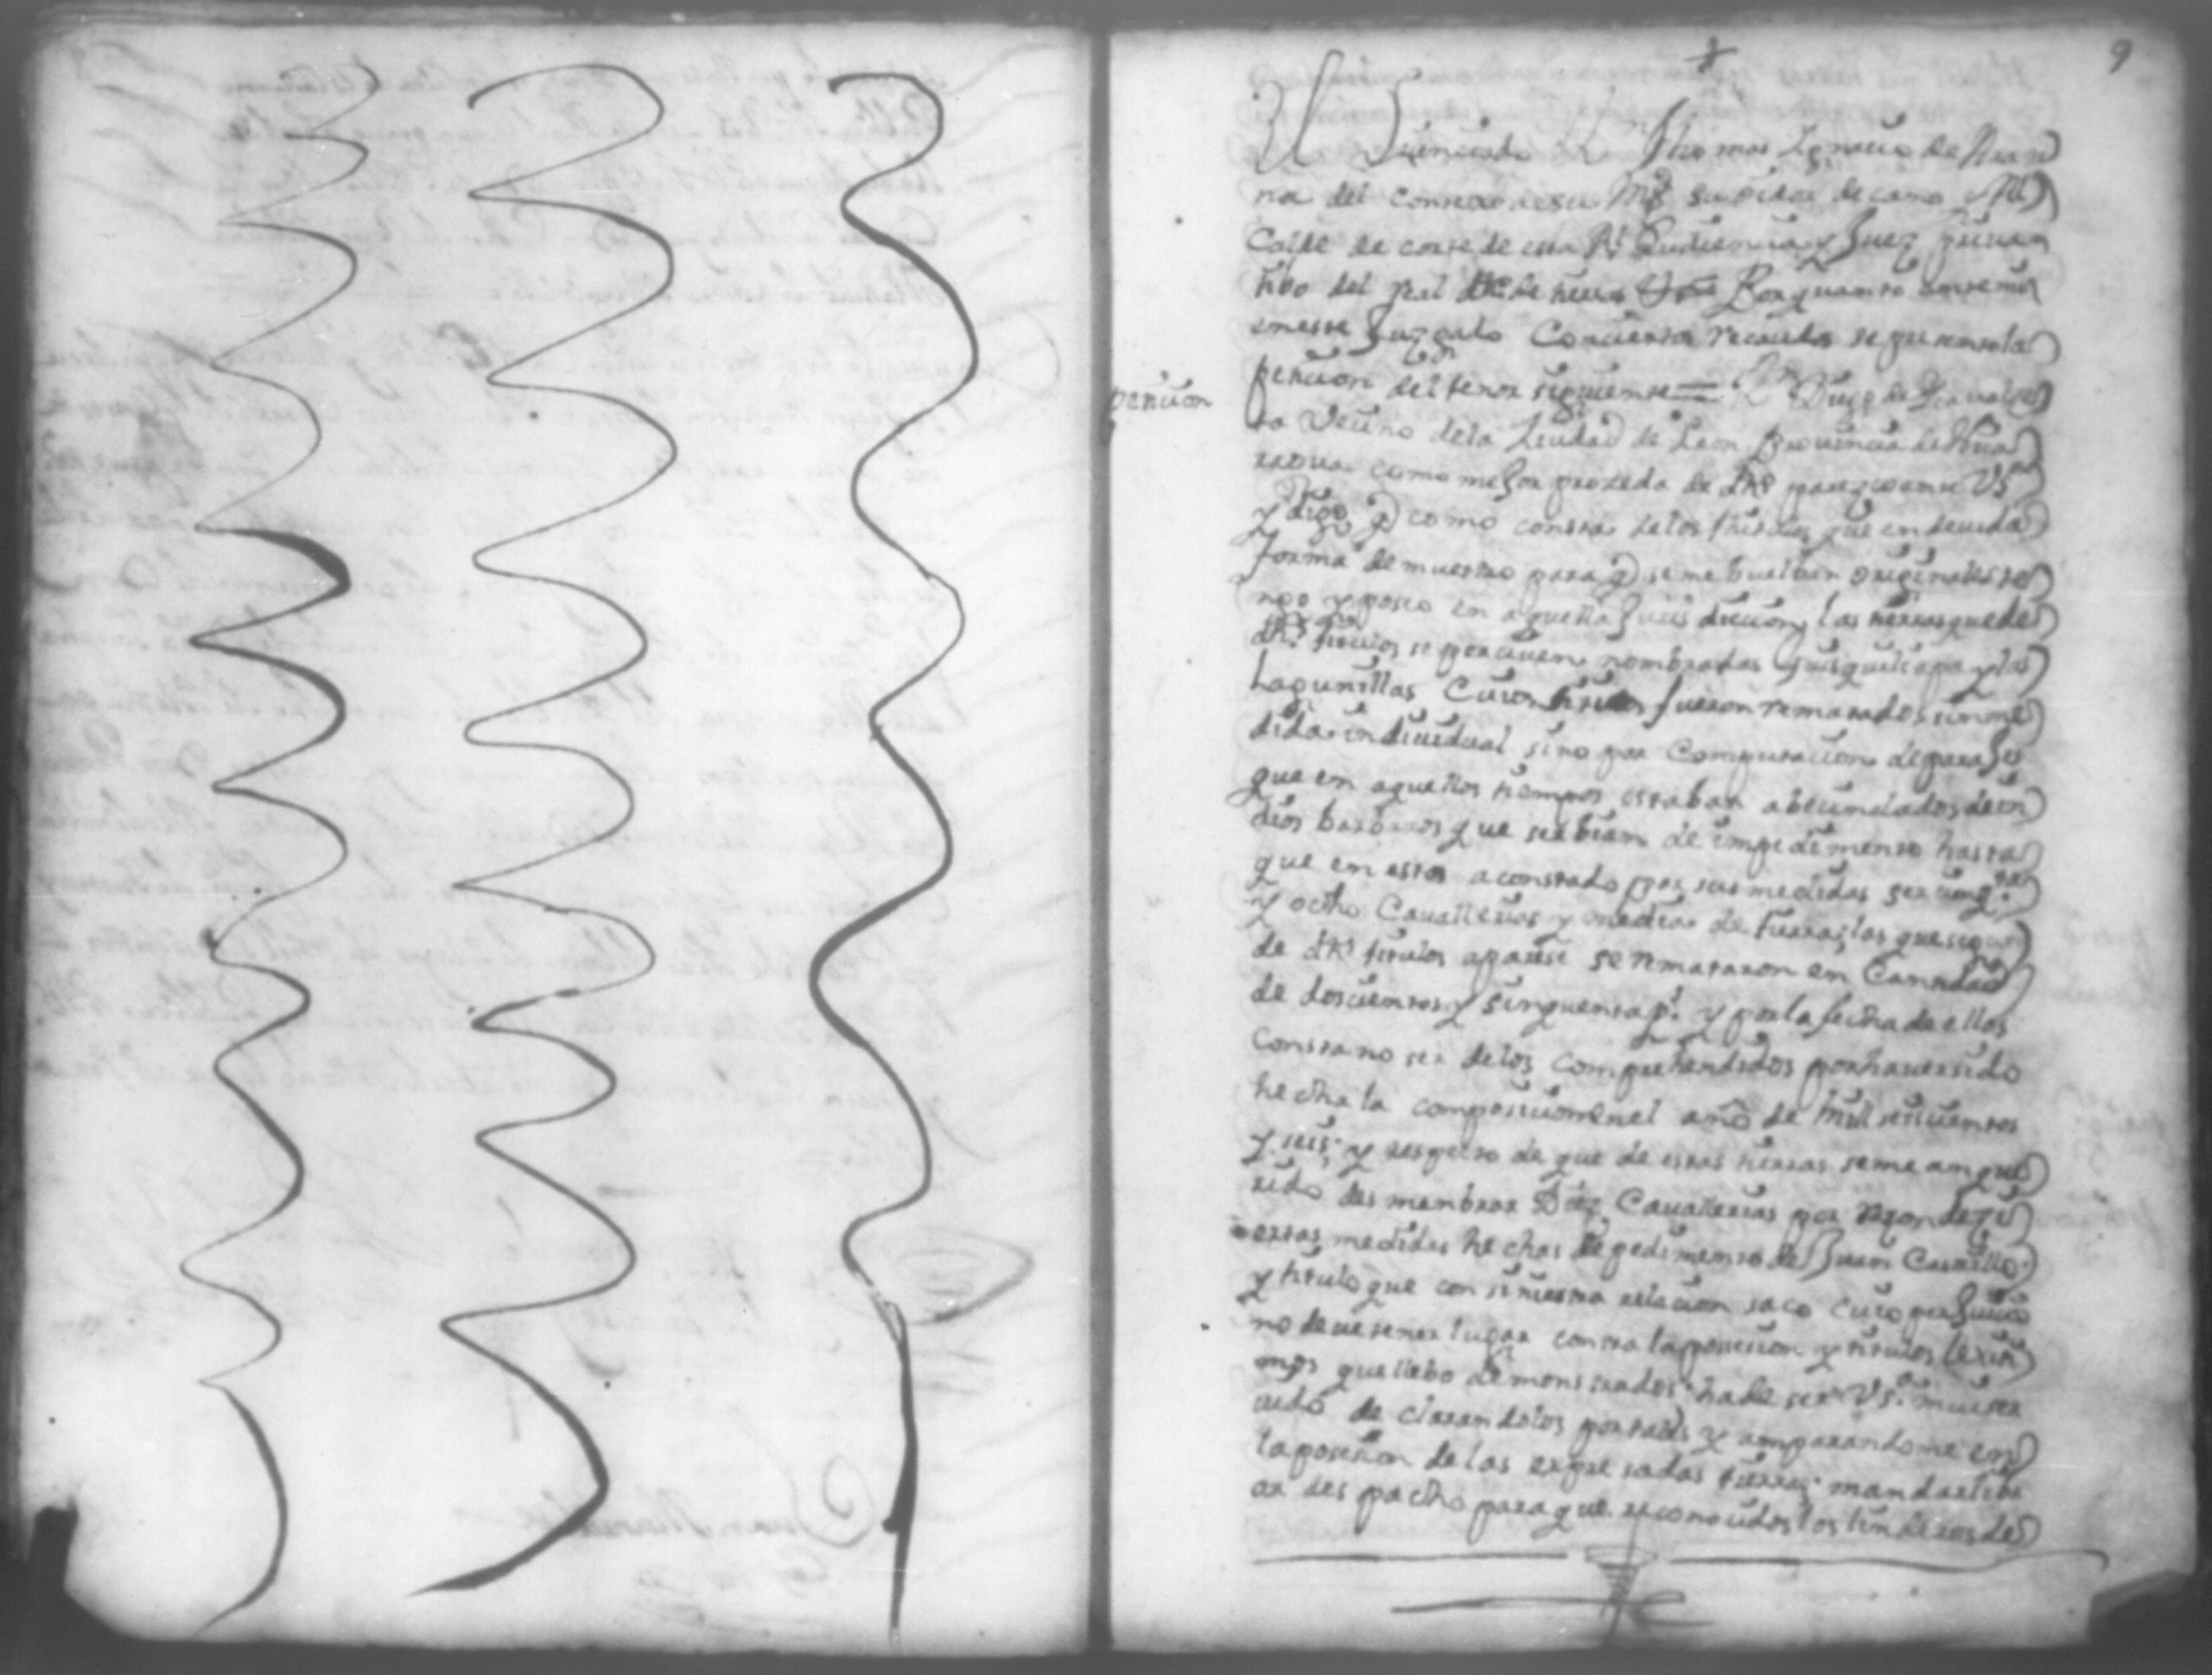 9
El Lisenciado Dn Thomas Ygnacio de Aran
na del Consexo de su Mgd su oidor decano Al
Calde de corte de esta Rl Audiencia y Juez priuati
tibo del Rl de tierras Por quanto ante mi
en este Juzgado Con ciertos recaudos se presento la
peticion
peticion del tenor siguiente = Dn Diego de
ta Vecino de la Ziudad de Leon Prouincia de Nica
ragua como mejor proxeda de dro parezco ante VSa
y digo q como consta de los titulos que en deuida
forma demuestro para q se me buelban originales ten
ngo y poseo en aquella Juris dicion las tierras que de
dhos titulos se perciuen nombradas y las
Lagunillas Cuios titulos fueron rematados sin me
dida indiuidual sino por Computacion de paraJes
que en aquellos tiempos estaban abecindados de in
dios barbaros que serbian de impedimento hasta
que en estos a constado por sus medidas ser
y ocho Cauallerias y media de tierras las que segun
de dhos titulos aparese se remataron en Cantidad
de doscientos y sinquenta ps y por la fecha de ellos
consta no ser de los comprehendidos por hauer sido
hecha la composicion en el año de mill seiscientos
y seis y respecto de que de estas tierras se me an que
rido desmembrar Diez Cauallerias por razon de ci
ertas medidas hechas de pedimento de Juan Castillo
y titulo que con siniestra relacion saco cuio perJuicio
no deue tener lugar contra la posesion y titulos lexiti
mos que llebo demonstrados ha de ser VSa muy ser
uido de clarandolos por tales y amparandome en
la posesion de las expresadas tierras mandar libr
ar des pacho para que reconocidos los linderos de